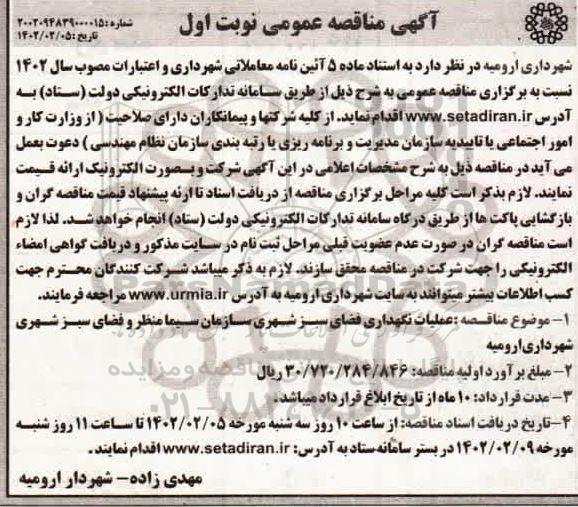 آگهی مناقصه عمومی نوبت اول
شماره: ۲۰۰۲۰۹۴۸۳۹۰۰۰۰۱۵
تاریخ: ۱۴۰۲/۰۲/۰۵
شهرداری ارومیه در نظر دارد به استناد ماده ۵ آئین نامه معاملاتی شهرداری و اعتبارات مصوب سال ۱۴۰۲
نسبت به برگزاری مناقصه عمومی به شرح ذیل از طریق سامانه تدارکات الکترونیکی دولت (ستاد) به
آدرس www.setadiran.ir اقدام نماید. از کلیه شرکتها و پیمانکاران دارای صلاحیت ( از وزارت کار و
امور اجتماعی یا تاییدیه سازمان مدیریت و برنامه ریزی یا رتبه بندی سازمان نظام مهندسی ) دعوت بعمل
می آید در مناقصه ذیل به شرح مشخصات اعلامی در این آگهی شرکت و بصورت الکترونیک ارائه قیمت
نمایند. لازم بذکر است کلیه مراحل برگزاری مناقصه از دریافت اسناد تا ارئه پیشنهاد قیمت مناقصه گران و
بازگشایی پاکت ها از طریق درگاه سامانه تدارکات الکترونیکی دولت (ستاد) انجام خواهد شد. لذا لازم
است مناقصه گران در صورت عدم عضویت قبلی مراحل ثبت نام در سایت مذکور و دریافت گواهی امضاء
الکترونیکی را جهت شرکت در مناقصه محقق سازند. لازم به ذکر میباشد شرکت کنندگان محترم جهت
کسب اطلاعات بیشتر میتوانند به سایت شهرداری ارومیه به آدرس www.urmia.ir مراجعه فرمایند.
۱- موضوع مناقصه : عملیات نگهداری فضای سبز شهری سازمان سیما منظر و فضای سبز شهری
شهرداری ارومیه
۲- مبلغ برآورد اولیه مناقصه: ۳۰/۷۲۰/۲۸۴/۸۴۶ ریال
۳- مدت قرارداد: ۱۰ ماه از تاریخ ابلاغ قرارداد میباشد.
۴- تاریخ دریافت اسناد مناقصه: از ساعت ۱۰ روز سه شنبه مورخه ۱۴۰۲/۰۲/۰۵ تا ساعت ۱۱ روز شنبه
مورخه ۱۴۰۲/۰۲/۰۹ در بستر سامانه ستاد به آدرس: www.setadiran.ir اقدام نمایند.
مهدی زاده - شهردار ارومیه